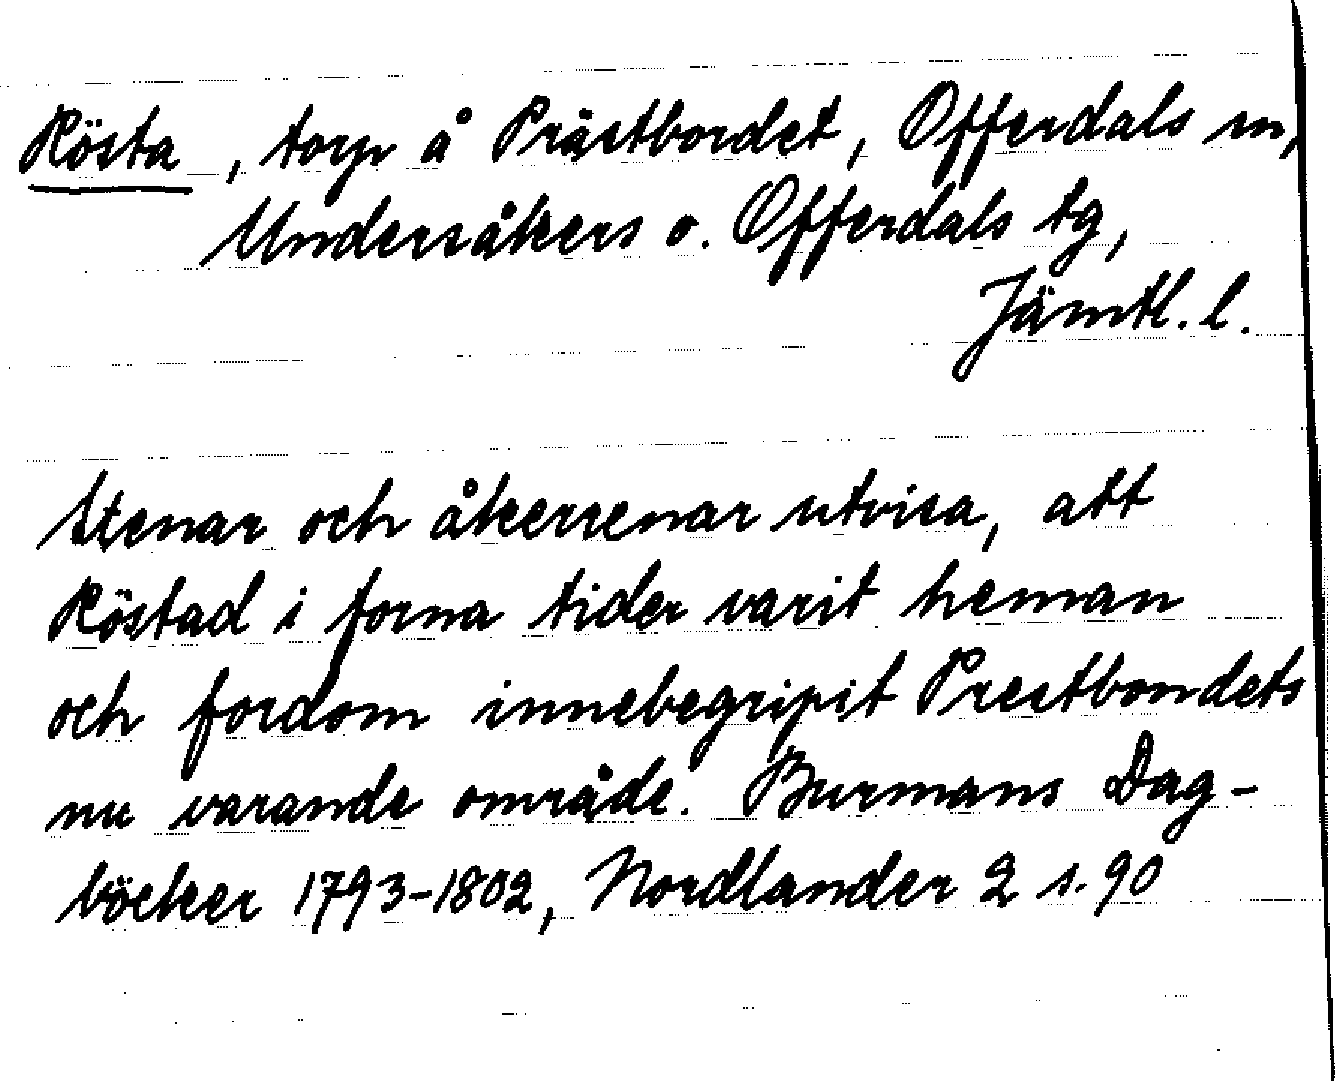 Rösta, torp å Prästbordet, Offerdals sn,
Undersåkers o. Offerdals tg,
Jämtl. l.
Stenar och åkerrenar utvisa, att
Röstad i forna tider varit heman
och fordom innebegripit Prestbordets
nu varande område. Burmans Dag-
böcker 1793-1802, Nordlander 2 s. 90